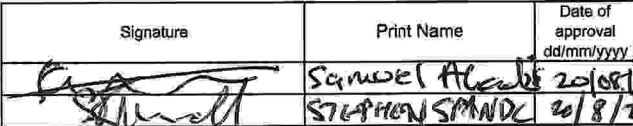 Signature Print Name Date of
approval
dd/mm/yyyy
Samuel 20/08/
STEPHEN 20/8/